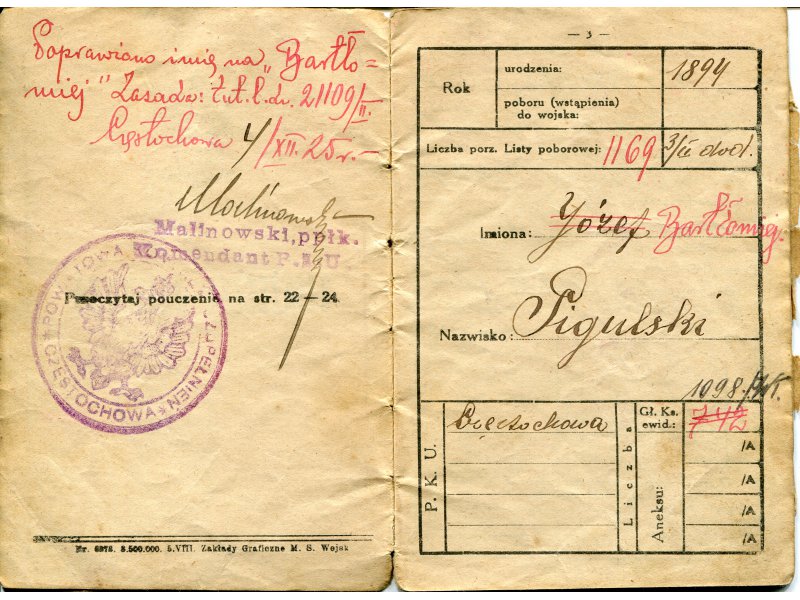 Poprawiono imię na „Bartło-
miej" Zasada: tut. l.dz. 21109/II.
Częstochowa 4/XII. 25 r.
Malinowski
Malinowski, ppłk.
Komendant P. K. U
Przeczytaj pouczenie na str. 22—24.
POWIATOWA UZUPEŁNIEŃ
CZĘSTOCHOWA
Nr. 6878. 3.500.000. 5.VIII. Zakłady Graficzne M. S. Wojsk
— 3 —
Rok
urodzenia: 1894
poboru (wstąpienia)
do wojska:
Liczba porz. Listy poborowej: 1169 3/II dod.
Imiona: Józef Bartłomiej
Nazwisko: Pigulski
1098/
P. K. U.
Częstochowa
Liczba
Gł. Ks.
ewid.: 742
Aneksu:
/A
/A
/A
/A